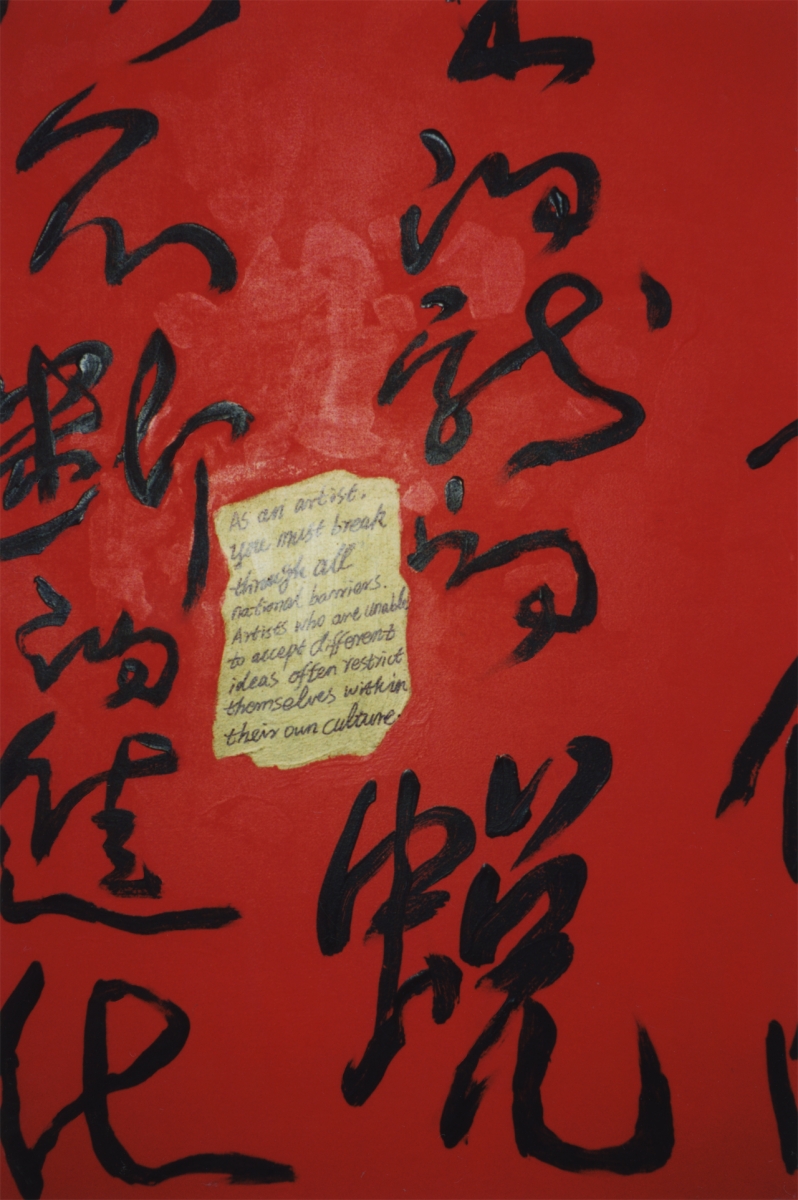 的
的蜕
不断的進化
As an artist,
you must break
through all
national barriers.
Artists who are unable
to accept different
ideas often restrict
themselves within
their own culture.